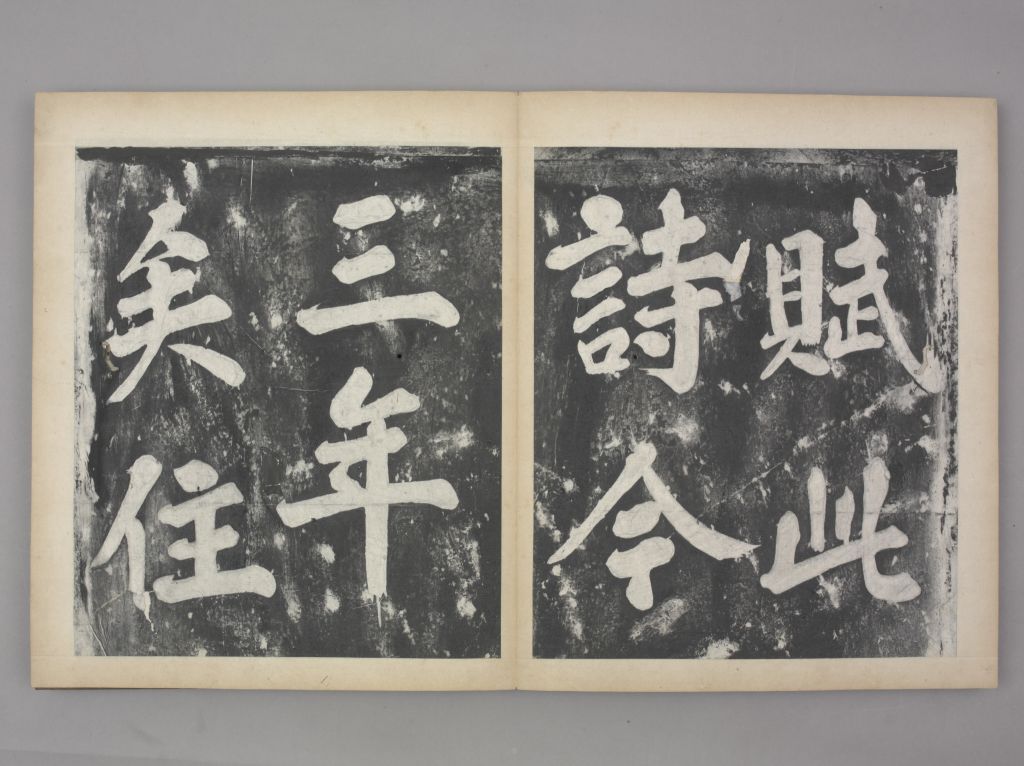 賦此
詩今
三年
矣住